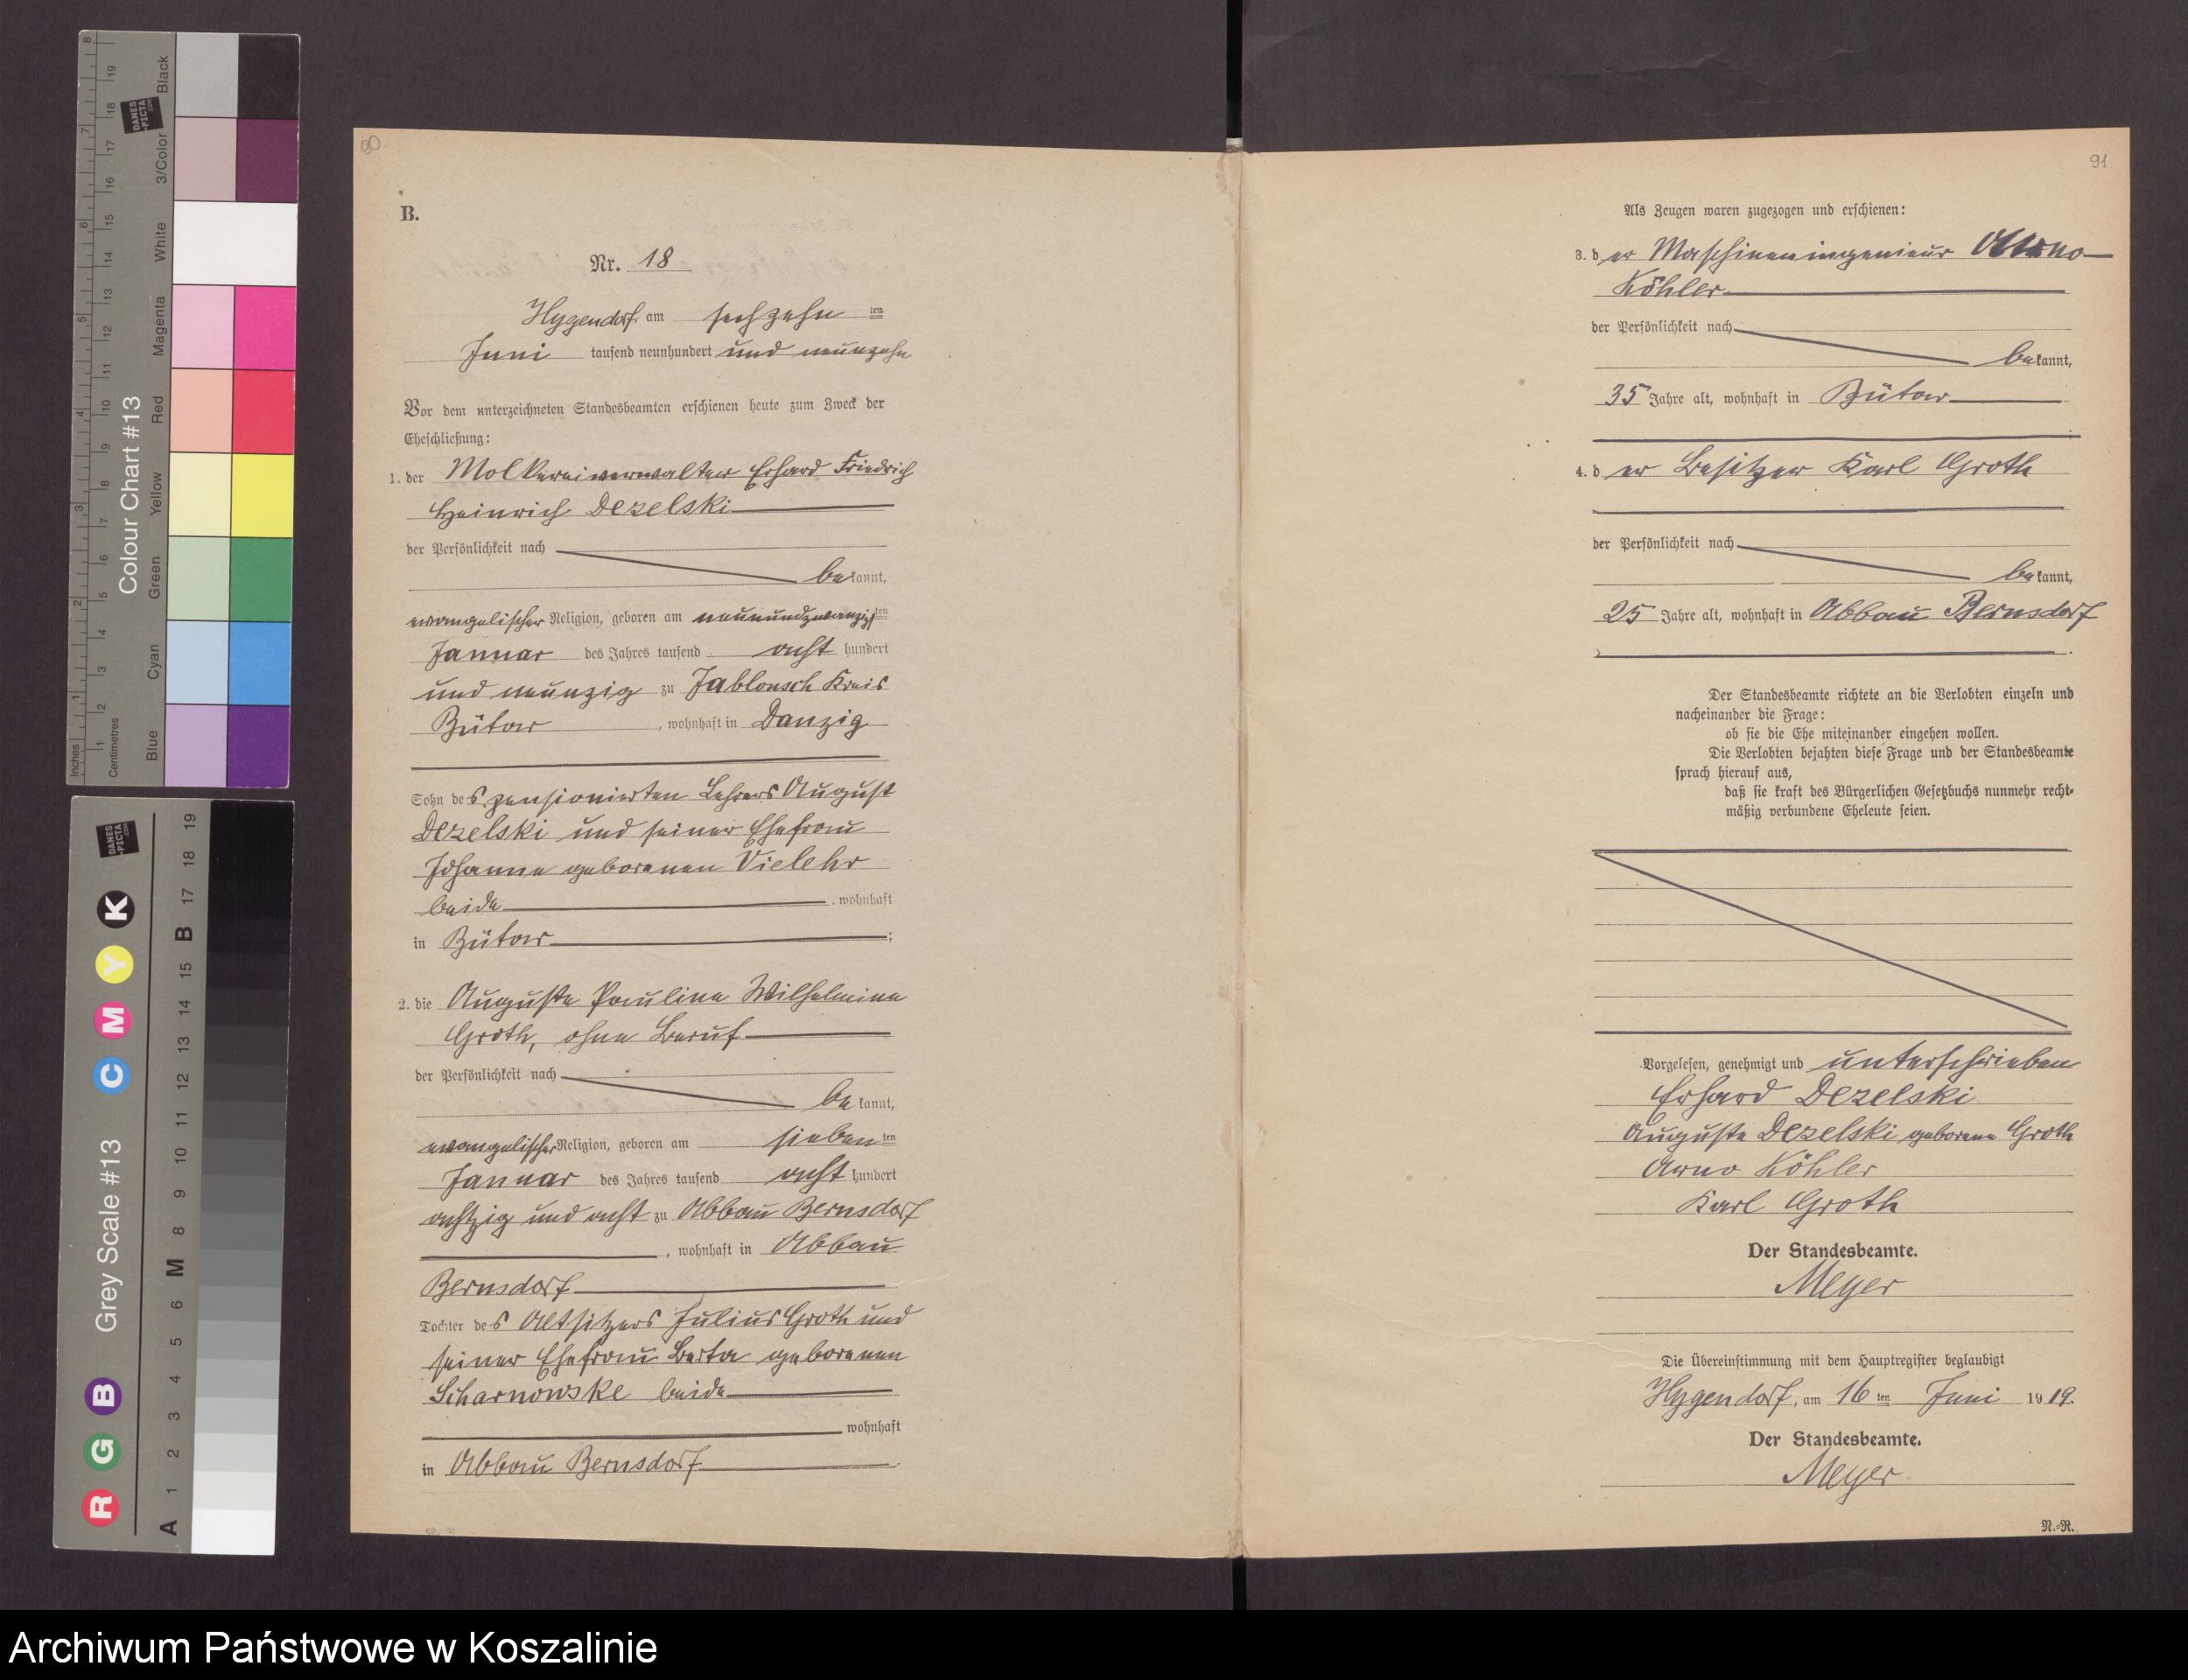 90
B.
Nr. 18
Hygendorf am sechzehn ten
Juni tausend neunhundert und neunzehn
Vor dem unterzeichneten Standesbeamten erschienen heute zum Zweck der
Eheschließung:
1. der Molkereiverwalter Erhard Friedrich
Heinrich Dezelski
der Persönlichkeit nach
bekannt,
evangelischer Religion, geboren am neunundzwanzigsten
Januar des Jahres tausend acht hundert
und neunzig zu Jablonsch Kreis
Bütow, wohnhaft in Danzig
Sohn des pensionierten Lehrers August
Dezelski und seiner Ehefrau
Johanna geborenen Vielehr
beide wohnhaft
in Bütow;
2. die Auguste Pauline Wilhelmine
Groth, ohne Beruf
der Persönlichkeit nach
bekannt,
evangelischer Religion, geboren am siebenten
Januar des Jahres tausend acht hundert
achtzig und acht zu Abbau Bernsdorf
, wohnhaft in Abbau
Bernsdorf
Tochter des Altsitzers Julius Groth und
seiner Ehefrau Berta geborenen
Scharnowske beide
wohnhaft
in Abbau Bernsdorf.
91
Als Zeugen waren zugezogen und erschienen:
3. der Maschineningenieur Arno
Köhler
der Persönlichkeit nach
bekannt,
35 Jahre alt, wohnhaft in Bütow
4. der Besitzer Karl Groth
der Persönlichkeit nach
bekannt,
25 Jahre alt, wohnhaft in Abbau Bernsdorf
Der Standesbeamte richtete an die Verlobten einzeln und
nacheinander die Frage:
ob sie die Ehe miteinander eingehen wollen.
Die Verlobten bejahten diese Frage und der Standesbeamte
sprach hierauf aus,
daß sie kraft des Bürgerlichen Gesetzbuchs nunmehr recht-
mäßig verbundene Eheleute seien.
Vorgelesen, genehmigt und unterschrieben
Erhard Dezelski
Auguste Dezelski geborene Groth
Arno Köhler
Karl Groth
Der Standesbeamte.
Meyer
Die Übereinstimmung mit dem Hauptregister beglaubigt
Hygendorf, am 16 ten Juni 1919.
Der Standesbeamte.
Meyer
N.-R.
Colour Chart #13
Inches
Centimetres
Blue
Cyan
Green
Yellow
Red
Magenta
White
3/Color
Black
DANES-PICTA.COM
Grey Scale #13
R G B C M Y K
A 1 2 3 4 5 6 M 8 9 10 11 12 13 14 15 B 17 18 19
Archiwum Państwowe w Koszalinie